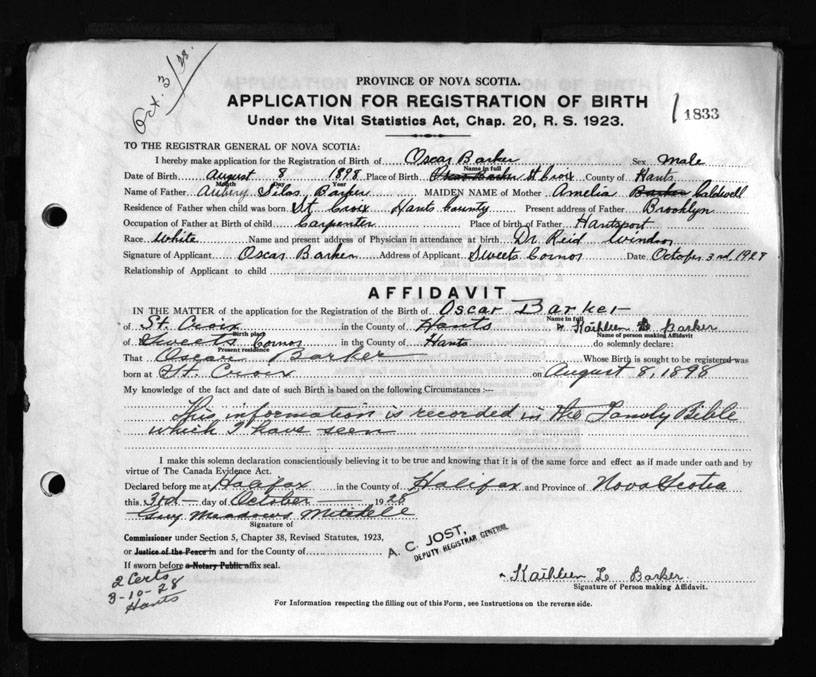 Oct. 3/28
PROVINCE OF NOVA SCOTIA.
APPLICATION FOR REGISTRATION OF BIRTH
Under the Vital Statistics Act, Chap. 20, R. S. 1923.
1833
TO THE REGISTRAR GENERAL OF NOVA SCOTIA:
I hereby make application for the Registration of Birth of Oscar Barker Sex Male
Name in full
Date of Birth August 8 1898 Place of Birth Oscar Barker St Croix County of Hants
Month Day Year
Name of Father Aubrey Silas Barker MAIDEN NAME of Mother Amelia Barker Caldwell
Residence of Father when child was born St Croix Hants County Present address of Father Brooklyn
Occupation of Father at Birth of child Carpenter Place of birth of Father Hantsport
Race White Name and present address of Physician in attendance at birth Dr Reid Windsor
Signature of Applicant Oscar Barker Address of Applicant Sweets Cornor Date October 3rd, 1928
Relationship of Applicant to child
AFFIDAVIT
IN THE MATTER of the application for the Registration of the Birth of Oscar Barker
Name in full
of St. Croix in the County of Hants I, Kathleen L Barker
Birth place Name of person making Affidavit
of Sweets Cornor in the County of Hants do solemnly declare:
Present residence
That Oscar Barker Whose Birth is sought to be registered was
born at St. Croix on August 8, 1898
My knowledge of the fact and date of such Birth is based on the following Circumstances :—
This information is recorded in the Family Bible
which I have seen
I make this solemn declaration conscientiously believing it to be true and knowing that it is of the same force and effect as if made under oath and by
virtue of The Canada Evidence Act.
Declared before me at Halifax in the County of Halifax and Province of Nova Scotia
this 3rd day of October 1928
Guy Meadows Mitchell
Signature of
Commissioner under Section 5, Chapter 38, Revised Statutes, 1923,
or Justice of the Peace in and for the County of
A. C. JOST,
DEPUTY REGISTRAR GENERAL
If sworn before a Notary Public affix seal.
2 Certs
3-10-28
Hants
Kathleen L Barker.
Signature of Person making Affidavit.
For Information respecting the filling out of this Form, see Instructions on the reverse side.